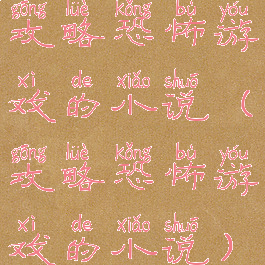 gōng lüè kǒng bù yóu
攻略恐怖游
xì de xiǎo shuō
戏的小说（
gōng lüè kǒng bù yóu
攻略恐怖游
xì de xiǎo shuō
戏的小说）